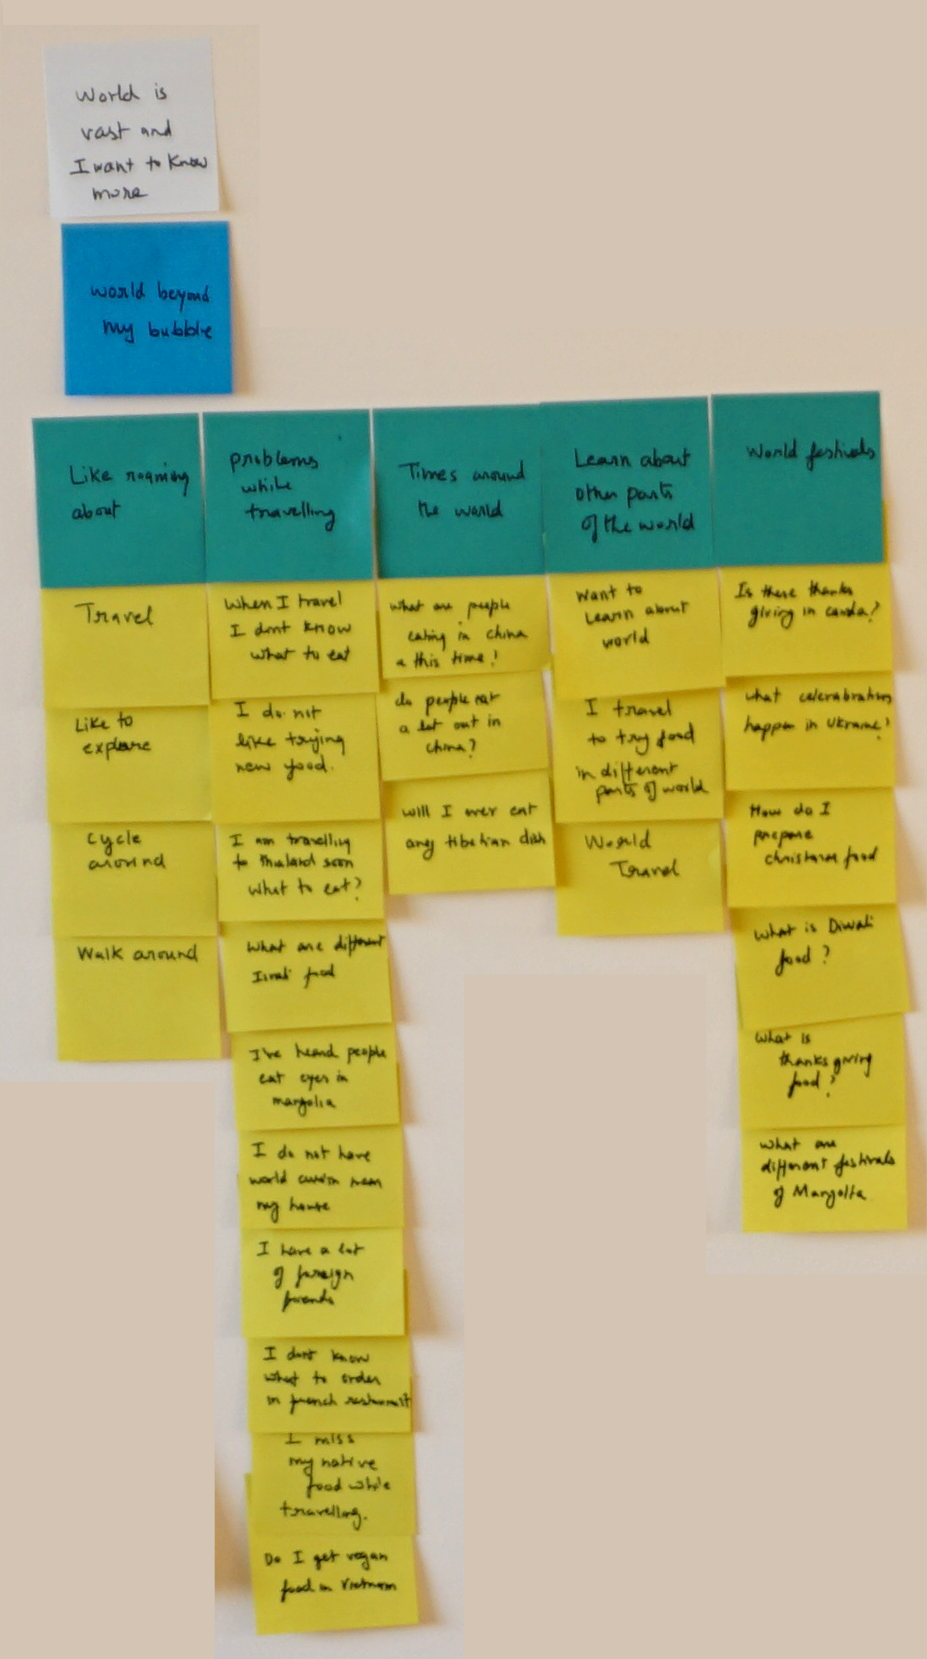 World is
vast and
I want to know
more
world beyond
my bubble
Like roaming
about
Travel
Like to
explore
Cycle
around
Walk around
problems
while
travelling
When I travel
I dont know
what to eat
I do not
like trying
new food.
I am travelling
to thailand soon
what to eat?
What are different
food
I've heard people
eat eyes in
mangolia
I do not have
world near
my house
I have a lot
of foreign
friends
I dont know
what to order
in french restaurant
I miss
my native
food while
travelling.
Do I get vegan
food in Vietnam
Times around
the world
what are people
eating in china
a this time!
do people eat
a lot out in
china?
will I ever eat
any tibetian dish
Learn about
other parts
of the world
Want to
Learn about
world
I travel
to try food
in different
parts of world
World
Travel
World festivals
Is there thanks
giving in canda?
what
happen in Ukraine?
How do I
prepare
christmas food
What is Diwali
food?
What is
thanks giving
food?
What are
different festivals
of Mangolia